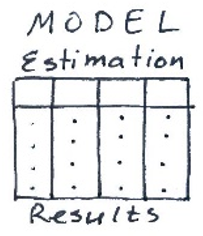 MODEL
Estimation
Results